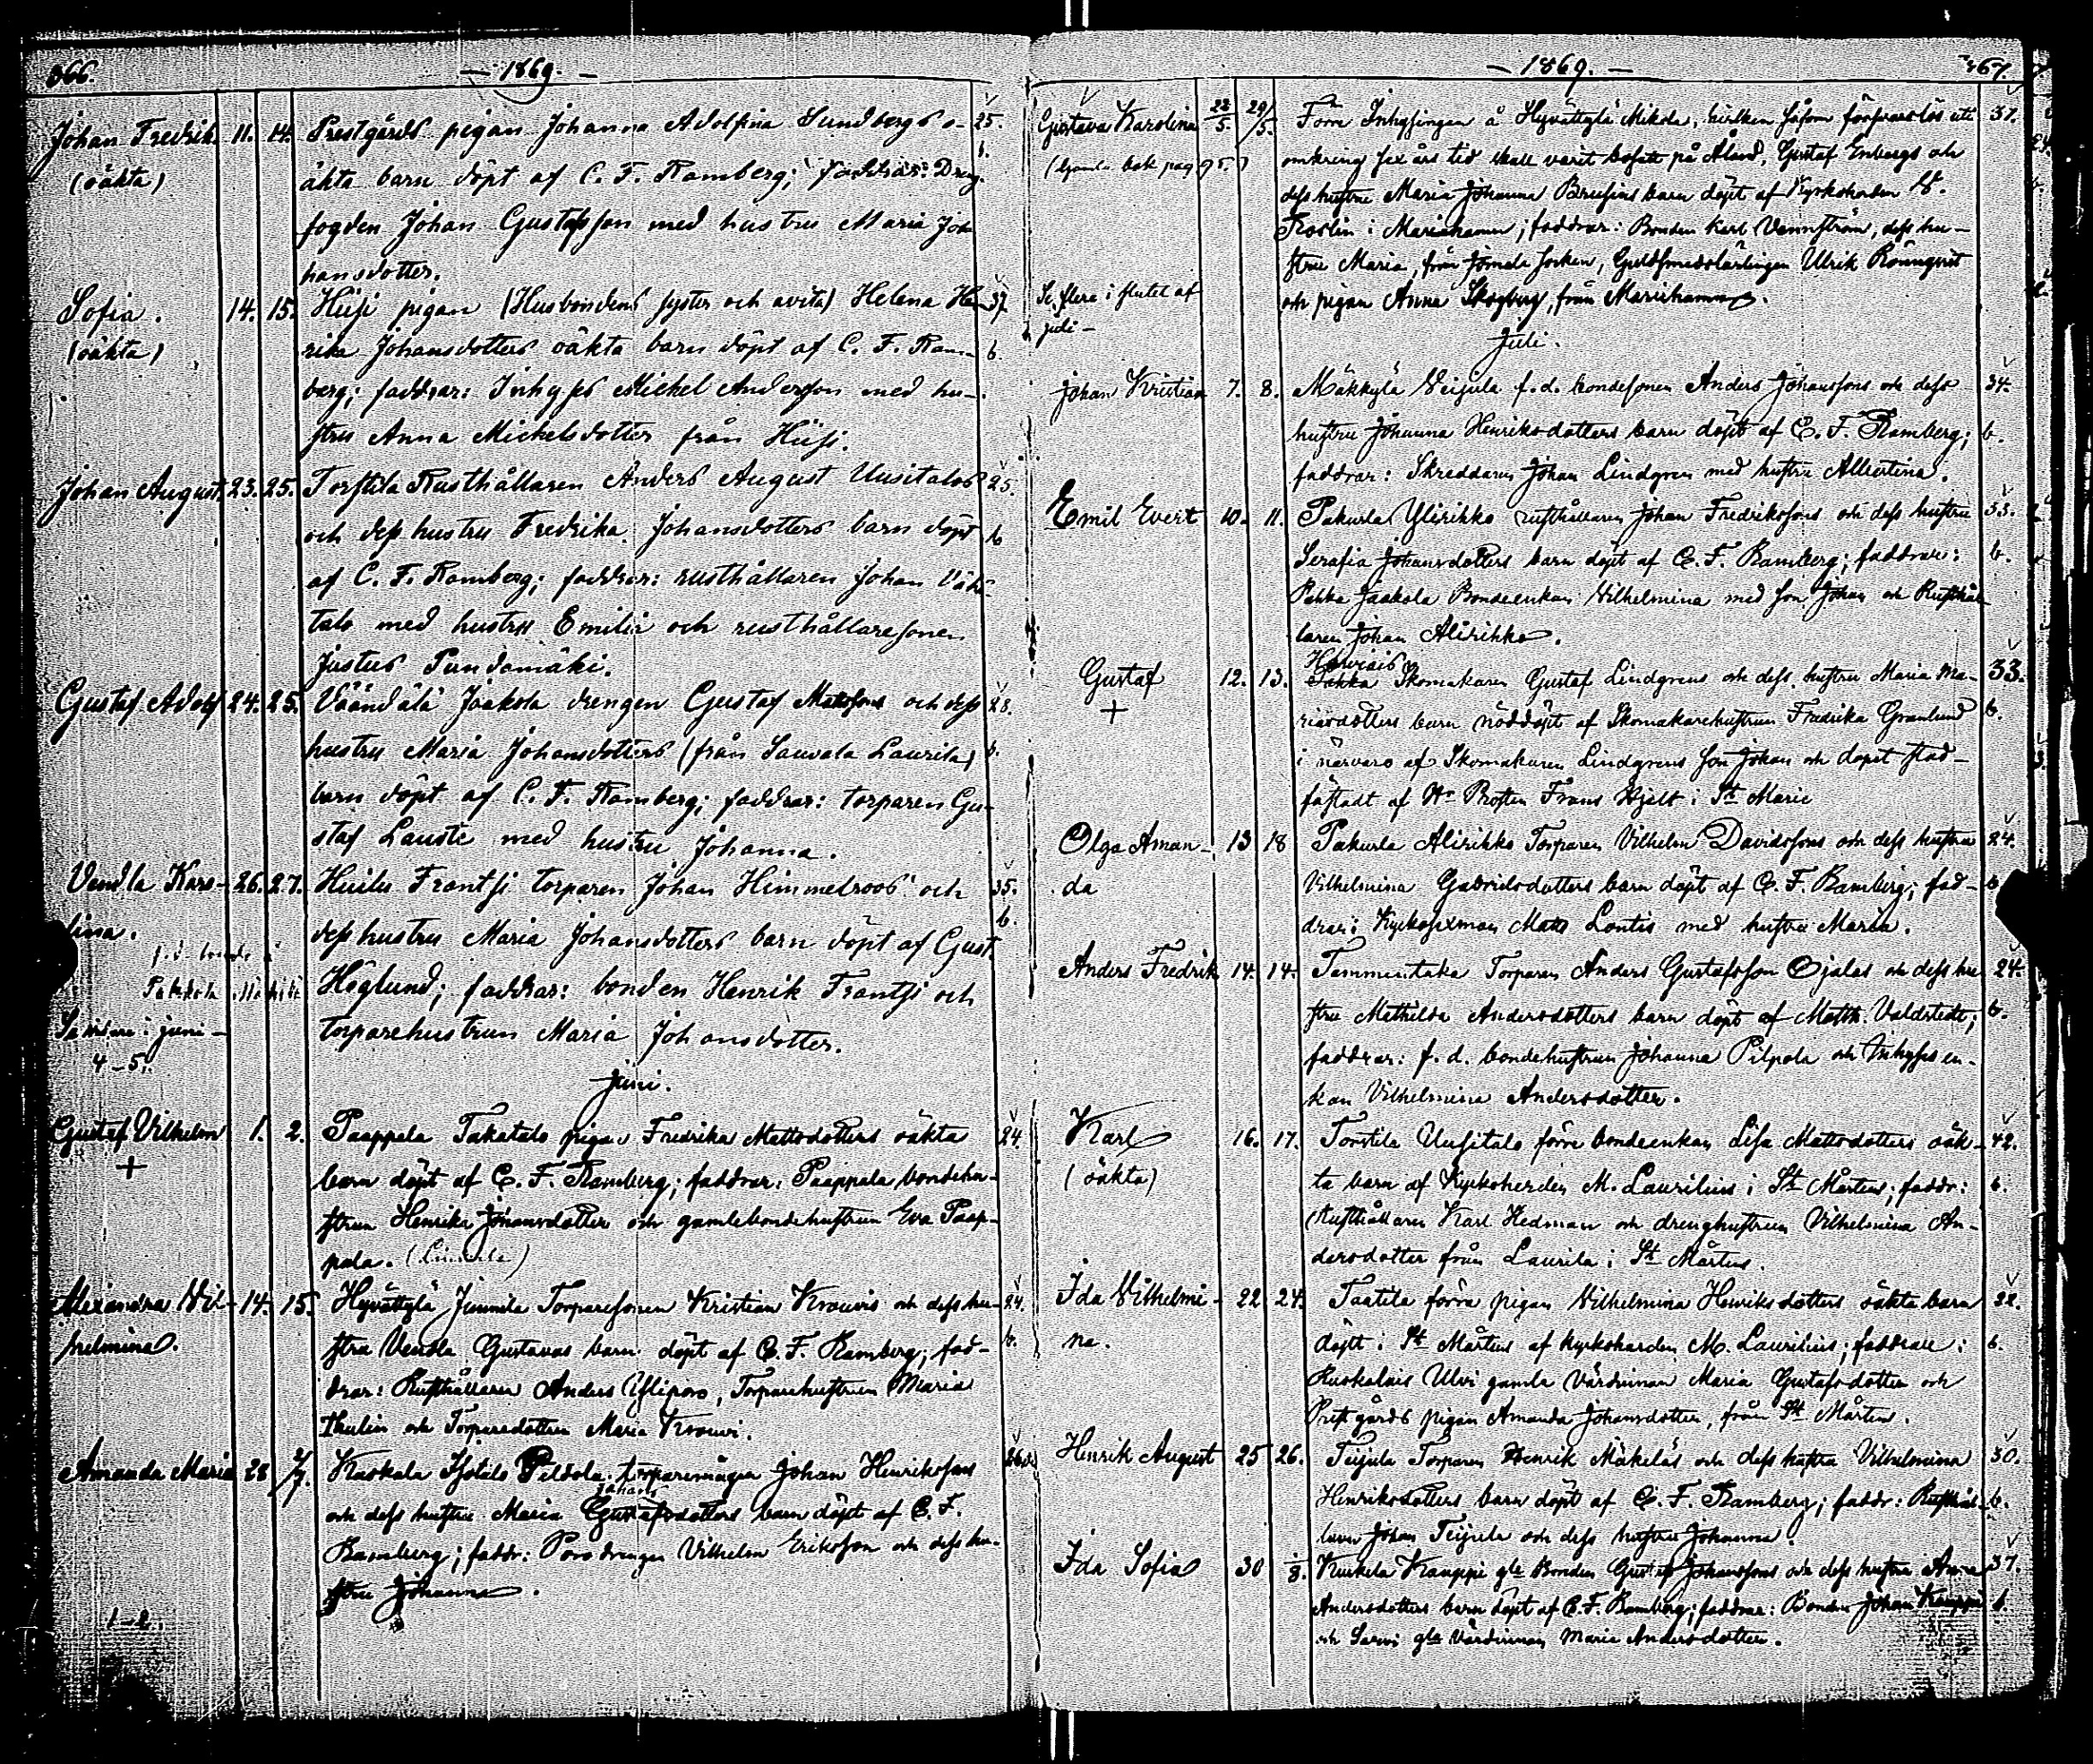 366.
— 1869. —
Johan Fredrik. 11. 14. Prestgårds pigan Johanna Adolfina Sundbergs o- 25.
(oäkta) äkta barn döpt af C. F. Ramberg; faddrar: Dreng- b.
fogden Johan Gustafsson med hustru Maria Jo-
hansdotter.
Sofia. 14. 15. Hiisi pigan (Husbondens syster och ) Helena Hen- 37.
(oäkta) rika Johansdotters oäkta barn döpt af C. F. Ram- b.
berg; faddrar: Inhyses Michel Andersson med hu-
stru Anna Michelsdotter från Hiisi.
Johan August. 23. 25. Torstila Rusthållaren Anders August Uusitalos 25.
och dess hustru Fredrika Johansdotters barn döpt b
af C. F. Ramberg; faddrar: rusthållaren Johan Vähä-
talo med hustru Emilia och rusthållaresonen
Justus Pundamäki.
Gustaf Adolf 24. 25. Väändälä Jaakola drengen Gustaf Mattssons och dess 28.
hustru Maria Johansdotters (från Sauvala Laurila) b.
barn döpt af C. F. Ramberg; faddrar: torparen Gu-
staf Lauste med hustru Johanna.
Vendla Karo- 26. 27. Huilu Frantsi torparen Johan Himmelroos' och 35.
lina. dess hustru Maria Johansdotters barn döpt af Gust. b.
Höglund; faddrar: bonden Henrik Frantsi och
torparehustrun Maria Johansdotter.
Se vidare i juni —
4—5.
Juni.
Gustaf Vilhelm 1. 2. Paappala Takatalo pigan Fredrika Mattsdotters oäkta 24.
+ barn döpt af C. F. Ramberg; faddrar: Paappala bondehu-
strun Henrika Johansdotter och gamlebondehustrun Eva Paap-
pala.
Alexandra Vil- 14. 15. Hyvättylä Junnila Torparesonen Kristian Krouvis och dess hu- 24.
helmina. stru Vendla Gustavas barn döpt af C. F. Ramberg; fad- b.
drar: Rusthållaren Anders Yliporo, Torparehustrun Maria
Thulin och Torparedottren Maria Krouvi.
Amanda Maria 28 2/7. Kaskala Isotalo Peldola torparemågen Johan Henrikssons
Johans
och dess hustru Maria Gustafsdotters barn döpt af C. F.
Ramberg; faddr: Poro drengen Vilhelm Eriksson och dess hu-
stru Johanna.
1—2.
— 1869. —
367.
Gustava Karolina 22/5. 29/5. Förre Inhysingen å Hyvättylä Mikola, hvilken såsom försvarslös uti 37.
(Gamla bok pag 75.) omkring sex års tid skall varit bosatt på Åland, Gustaf Enbergs och
dess hustru Maria Johanna Brusins barn döpt af Kyrkoherden
i Mariehamn; faddrar: Bonden Karl Vennström, dess hu-
stru Maria, från Jomala socken, Guldsmedslärlingen Ulrik Rönnqvist
och pigan Anna Skogberg, från Mariehamn.
Se flera i slutet af
juli —
Juli.
Johan Kristian 7. 8. Mäkkylä Veijula f. d. bondesonen Anders Johanssons och dess 34.
hustru Johanna Henriksdotters barn döpt af C. F. Ramberg; b.
faddrar: Skreddaren Johan Lindgren med hustru Albertina.
Emil Evert 10. 11. Pakurla Ylirikko rusthållaren Johan Fredrikssons och dess hustru 33.
Serafia Johansdotters barn döpt af C. F. Ramberg; faddrar: b.
Pekka Jaakola Bondeenkan Vilhelmina med son Johan och Rusthål-
laren Johan Alirikko.
Gustaf 12. 13. Skomakaren Gustaf Lindgrens och dess hustru Maria Ma- 33.
+ riasdotters barn nöddöpt af Skomakarehustrun Fredrika Granlund b.
i närvaro af Skomakaren Lindgrens son Johan och dopet stad-
fästadt af Hr Prosten Frans Hjelt i St Marie
Olga Aman- 13 18 Pakurla Alirikko Torparen Vilhelm Davidssons och dess hustru 24.
da Vilhelmina Gabrielsdotters barn döpt af C. F. Ramberg; fad- b
drar: Kyrkosexman Matts Lontis med hustru Maria.
Anders Fredrik 14. 14. Tammentaka Torparen Anders Gustafsson Ojalas och dess hu- 24.
stru Mathilda Andersdotters barn döpt af Matth. Valdstedt; b.
faddrar: f. d. bondehustrun Johanna Pilpola och Inhyses en-
kan Vilhelmina Andersdotter.
Karl 16. 17. Torstila Uusitalo förre bondeenkan Lisa Mattsdotters oäk- 42.
(oäkta) ta barn af Kyrkoherden M. Laurilius i St Mårtens; faddr: b.
Rusthållaren Karl Hedman och drenghustrun Vilhelmina An-
dersdotter från Laurila i St Mårtens.
Ida Vilhelmi- 22 24. Taatila förra pigan Vilhelmina Henriksdotters oäkta barn 32.
na. döpt i St Mårtens af kyrkoherden M. Laurilius; faddrar: b.
Ruskalais Ulvi gamla värdinnan Maria Gustafsdotter och
Prestgårds pigan Amanda Johansdotter, från St Mårtens.
Henrik August 25 26. Teijula Torparen Henrik Mäkeläs och dess hustru Vilhelmina 30.
Henriksdotters barn döpt af C. F. Ramberg; faddr: Rusthål- b.
laren Johan Teijula och dess hustru Johanna.
Ida Sofia 30 1/8. Kurkela Kauppi gle Bonden Gustaf Johanssons och dess hustru Anna 37.
Andersdotters barn döpt af C. F. Ramberg; faddrar: Bonden Johan Kauppi b.
och Sarvi gla Värdinnan Maria Andersdotter.